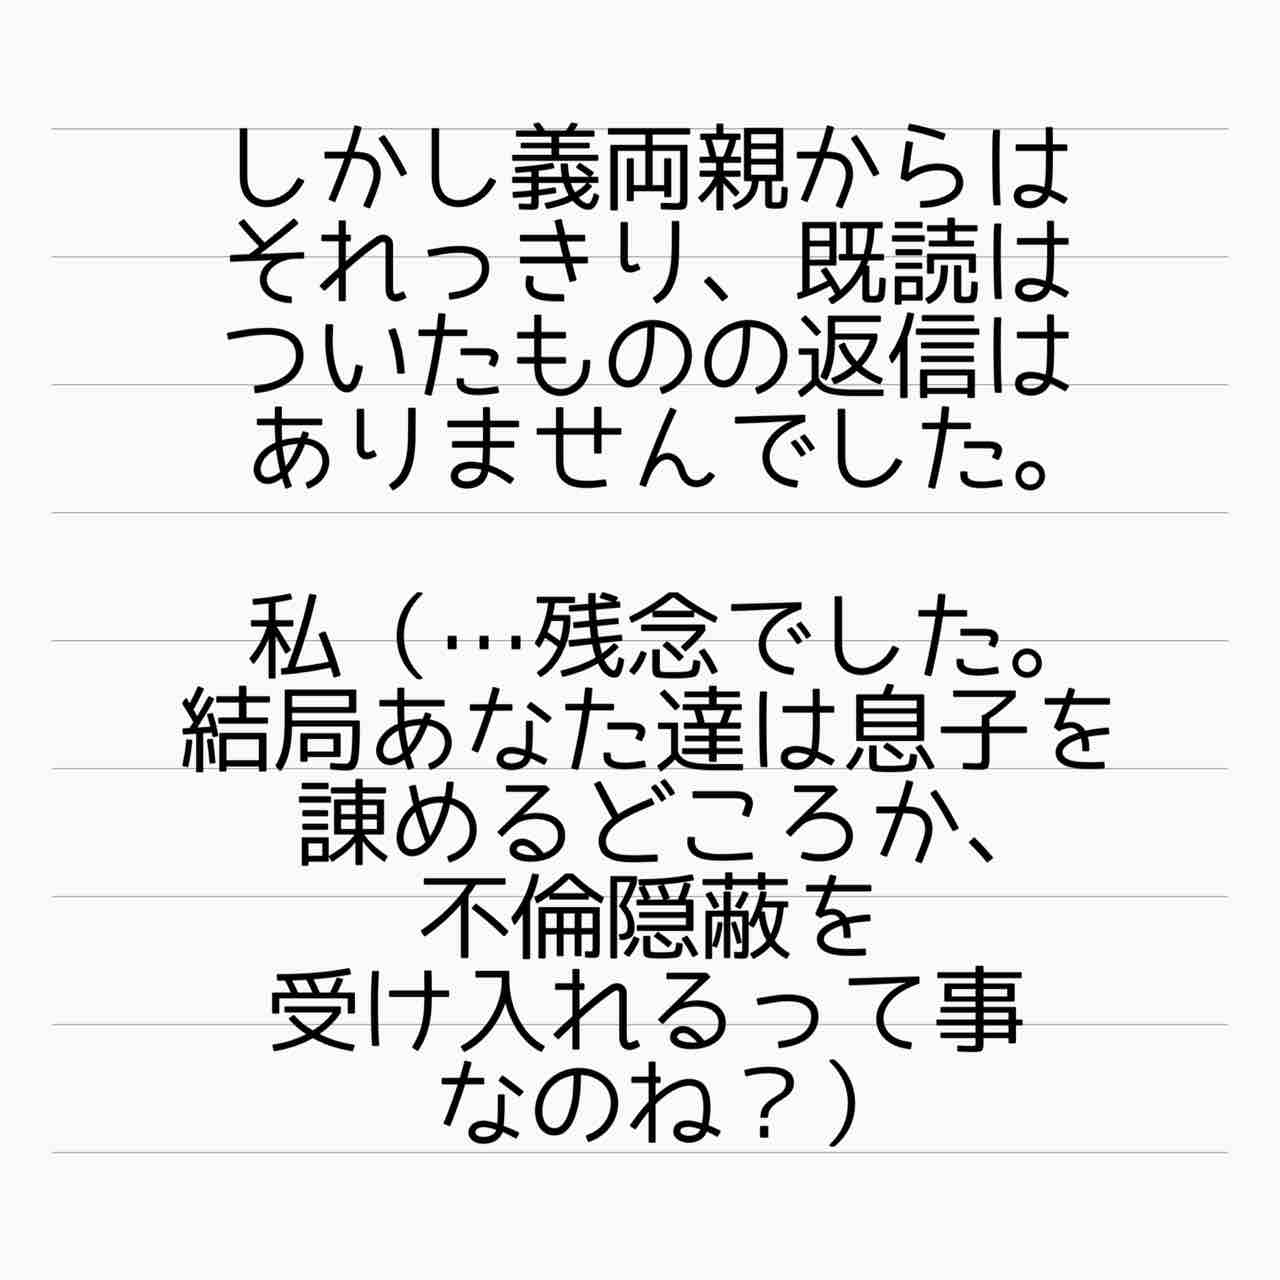 しかし義両親からは
それっきり、既読は
ついたものの返信は
ありませんでした。
私（…残念でした。
結局あなた達は息子を
諌めるどころか、
不倫隠蔽を
受け入れるって事
なのね？）